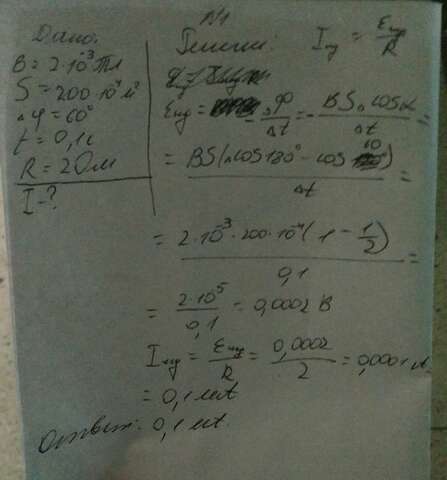 N1
Дано:
B = 2·10⁻³ Тл
S = 200·10⁻⁴ м²
Δφ = 60°
t = 0,1 с
R = 2 Ом
I - ?
Решение: I = E/R
E = - ΔФ/Δt = - BSΔcosα/Δt =
= BS(cos180° - cos 60)/Δt =
= 2·10⁻³·200·10⁻⁴(1 - 1/2)/0,1 =
= 2·10⁵/0,1 = 0,0002 В
I = E/R = 0,0002/2 = 0,0001 А
= 0,1 мА
Ответ: 0,1 мА.